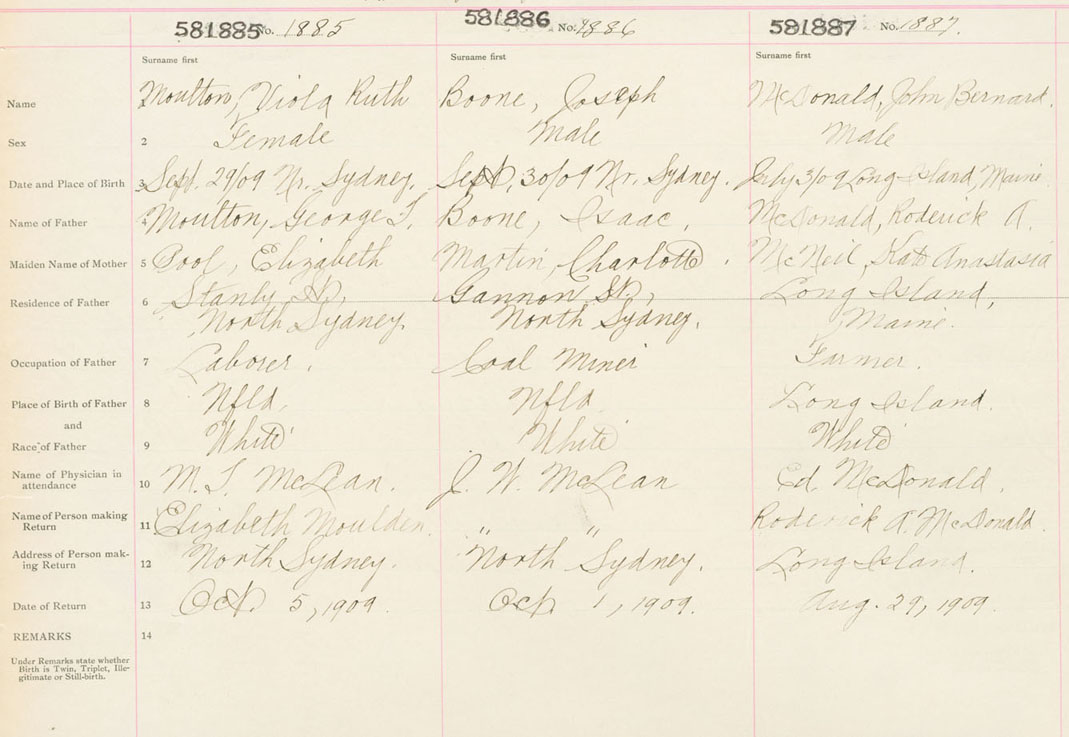 581885 No. 1885 581886 No. 1886 581887 No. 1887.
Surname first Surname first Surname first
Name Moulton, Viola Ruth Boone, Joseph McDonald, John Bernard.
Sex 2 Female Male Male
Date and Place of Birth 3 Sept. 29/09 Nr. Sydney. Sept, 30/09 Nr. Sydney. July 3/09 Long Island, Maine.
Name of Father 4 Moulton, George T. Boone, Isaac, McDonald, Roderick A.
Maiden Name of Mother 5 Pool, Elizabeth Martin, Charlotte. McNeil, Kate Anastasia
Residence of Father 6 Stanly St, Gannon St, Long Island,
North Sydney. North Sydney. Maine.
Occupation of Father 7 Laborer. Coal Miner Farmer.
Place of Birth of Father 8 Nfld, Nfld Long Island.
and
Race of Father 9 White White White
Name of Physician in
attendance 10 M. T. McLean. J. W. McLean Ed. McDonald.
Name of Person making
Return 11 Elizabeth Moulden " " Roderick A. McDonald.
Address of Person mak-
ing Return 12 North Sydney. North Sydney. Long Island.
Date of Return 13 Oct. 5, 1909. Oct. 1, 1909. Aug. 29, 1909.
REMARKS 14
Under Remarks state whether
Birth is Twin, Triplet, Ille-
gitimate or Still-birth.